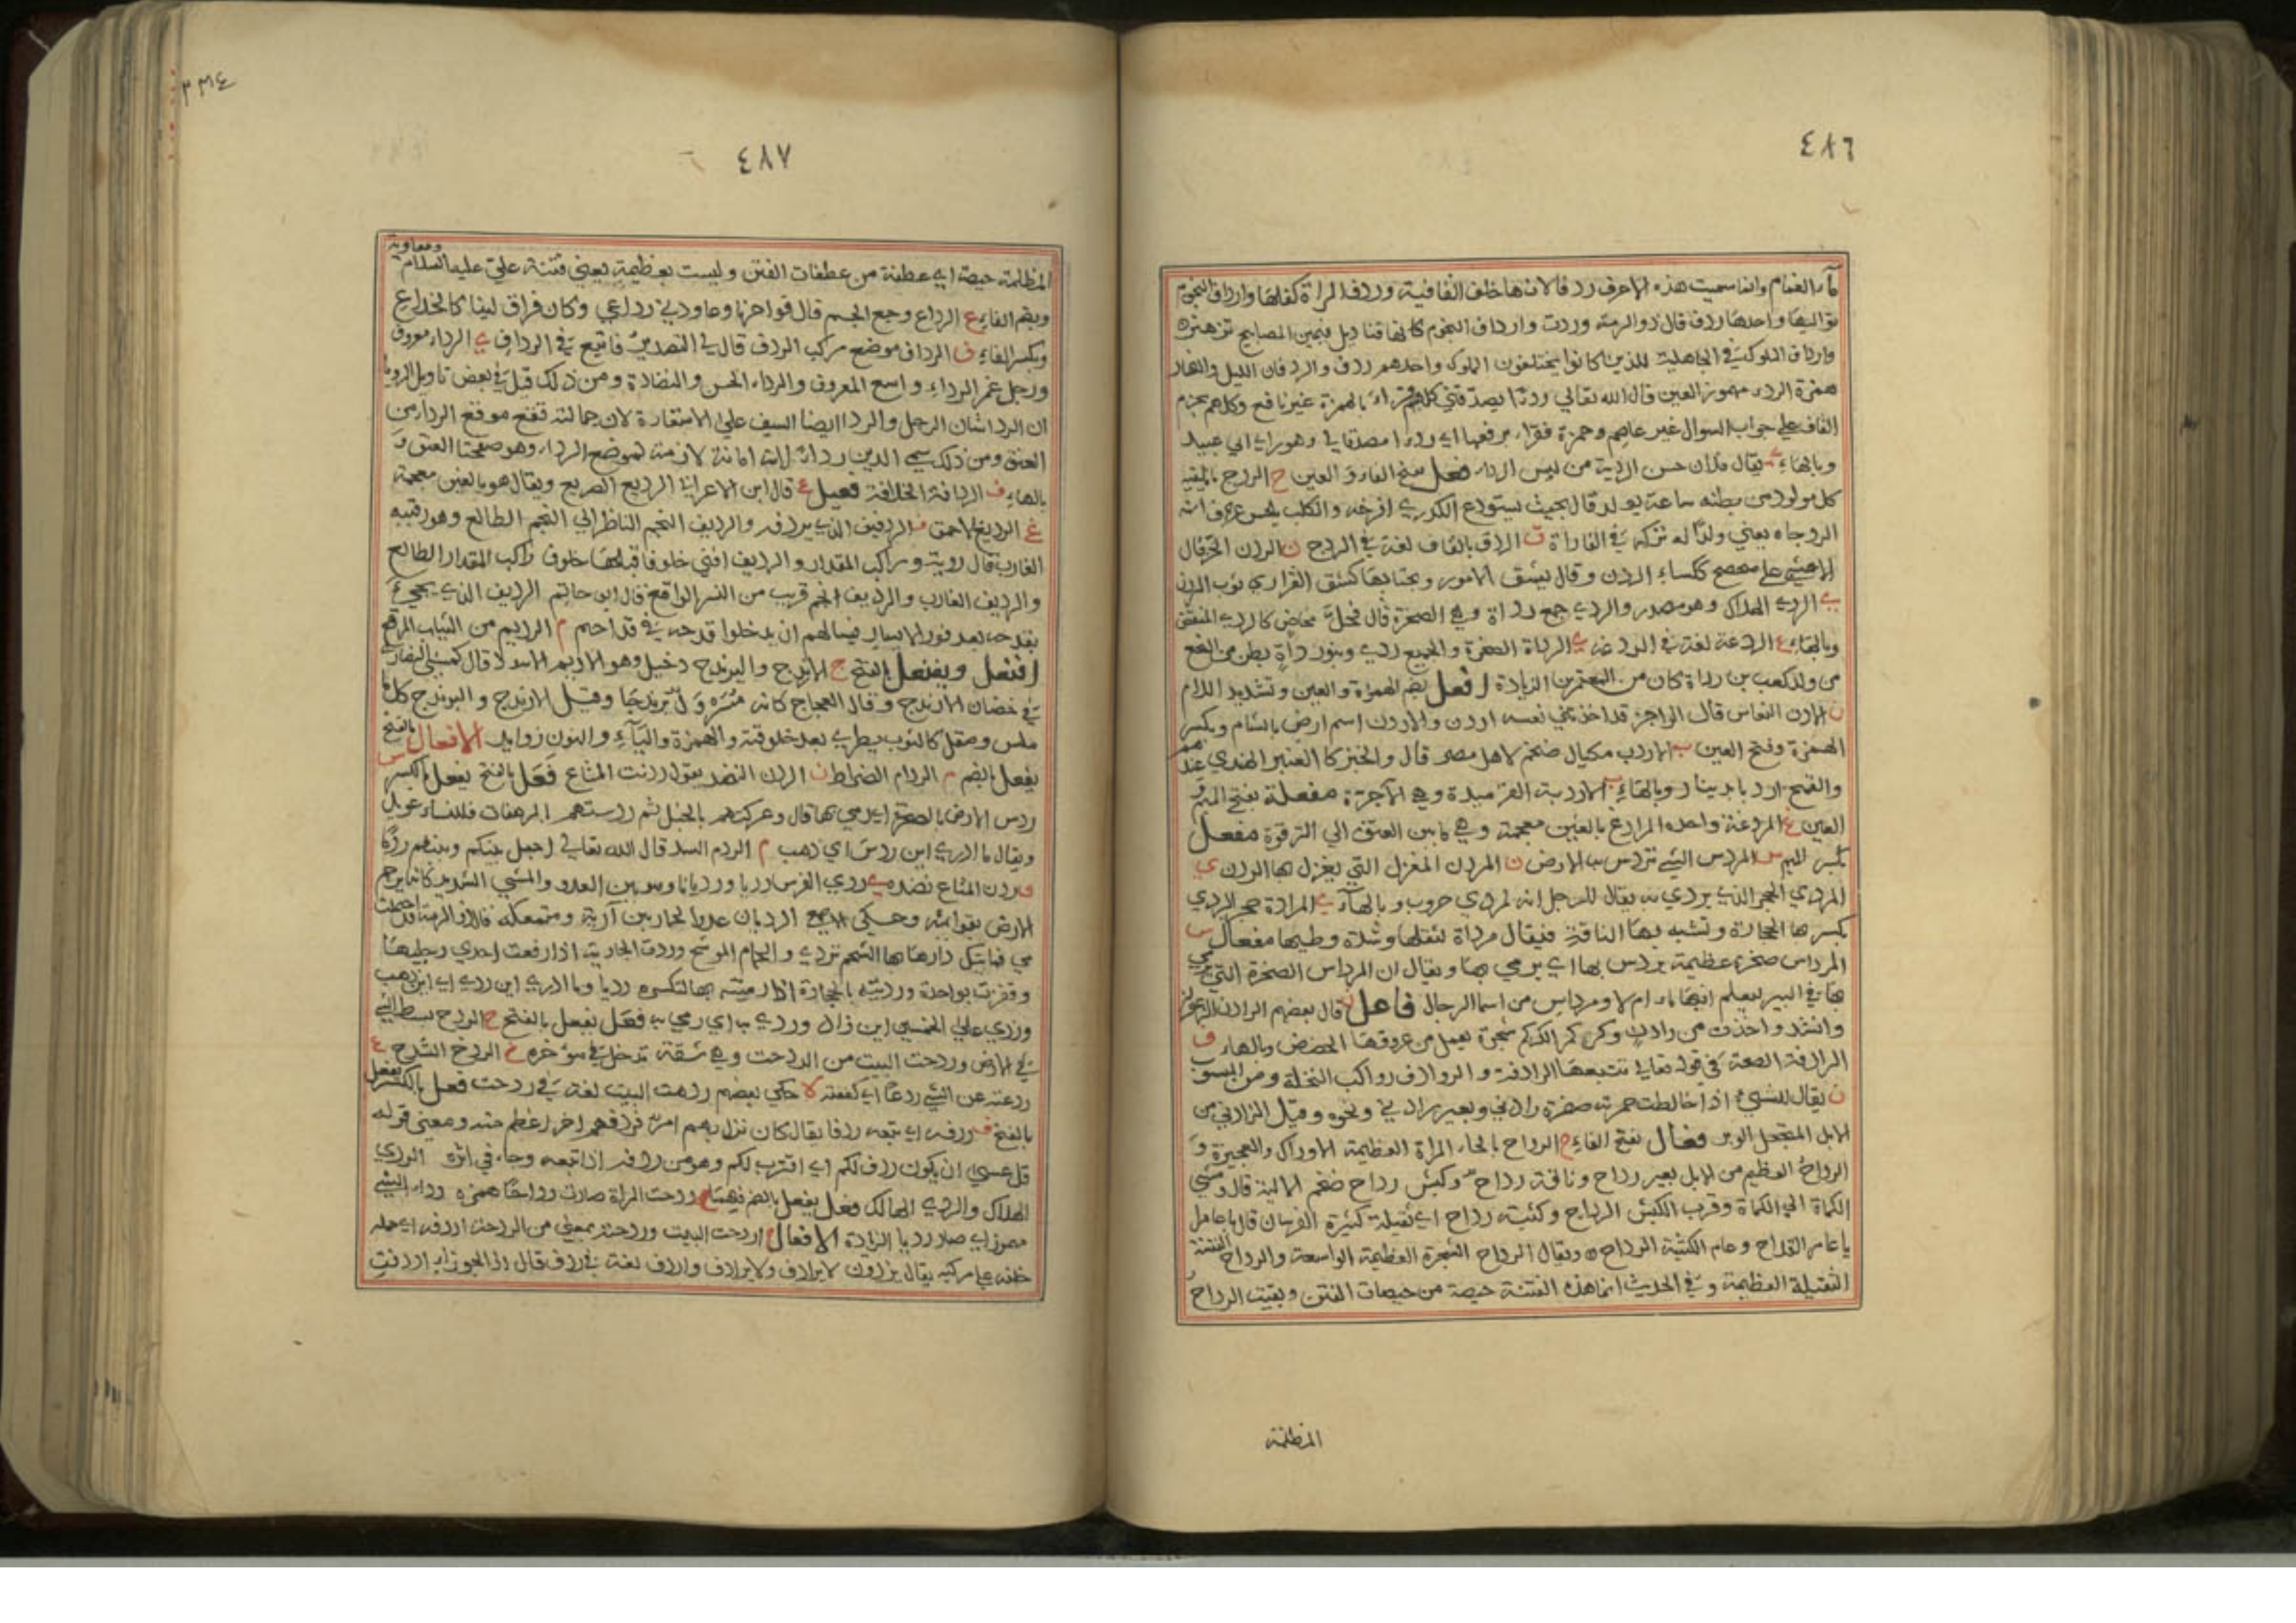 ٤٨٦
ماء الغمام وانما سميت هذه الاحرف ردفا لانها خلف القافية وردف المراة كفلها وارداف النجوم
تواليها واحدها ردف قال ذو الرمة وردت وارداف النجوم كانها قناديل فيهن المصابيح تزهر
وارداف الملوك في الجاهلية الذين كانوا يختلفون الملوك واحدهم ردف والردفان الليل والنهار
همزة الردء مهموز العين قال الله تعالى ردءا يصدقني كلهم قراء بالهمزة غير نافع وكلهم بجزم
القاف على جواب السوال غير عاصم وحمزة فقراء برفعها اي ردءا مصدقا لي وهو راي ابي عبيد
وبالهاء ي يقال فلان حسن الردية من لبس الرداء فعل بفتح الفاء والعين ج الردج ما يلقيه
كل مولود من بطنه ساعة يولد قال بحيث يستودع الكدري افرخه والكلب يلحس عن
الردجاه يعني ولدا له تركه في الفلاة ق الردق بالقاف لغة في الردج ن الردن الخز قال
الاعشى على صحصح ككساء الردن وقال يشق الامور ويجتابها كشق القراري ثوب الردن
ي الردى الهلاك وهو مصدر والردي جمع رداة وهي الصخرة قال فحل مخاض كالردى المنقض
وبالهاء ع الردعة لغة في الردغة ي الرداة الصخرة والجميع ردي وبنو رداة بطن من النخع
من ولد كعب بن رداة كان من المعمرين الزيادة افعل بضم الهمزة والعين وتشديد اللام
ن الاردن النعاس قال الراجز قد اخذتني نعسة اردن والاردن اسم ارض بالشام وبكسر
الهمزة وفتح العين ب الاردب مكيال ضخم لاهل مصر قال والخبز كالعنبر الهندي عندهم
والقمح اردبا بدينار وبالهاء ب الاردبة القرميدة وهي الآجرة مفعلة بفتح الميم و
العين غ المردغة واحدة المرادغ بالغين معجمة وهي ما بين العنق الى الترقوة مفعل
بكسر الميم س المردس الشي تردس به الارض ن المردن المغزل التي يغزل بها الردن ي
المردي الحجر الذي يردي به يقال للرجل انه لمردي حروب وبالهاء ي المرداة حجر المردي
يكسر بها الحجارة وتشبه بها الناقة فيقال مرداة لثقلها وشدة وطيها مفعال س
المرداس صخرة عظيمة يردس بها اي يرمي بها ويقال ان المرداس الصخرة التي يرمي
بها في البير ليعلم افيها ماء ام لا ومرداس من اسما الرجال فاعل ن قال بعضهم الرادن الزعفران
وانشد واخذت من رادن وكركم الكركم شجرة يعمل من عروقها الحضض وبالهاء ف
الرادفة الصعقة في قوله تعالى تتبعها الرادفة والروادف رواكب النخلة ومن المنسوب
ن يقال للشيء اذا خالطت حمرته صفرة رادني وبعير رادني ونحوه وقيل الرادني من
الابل الجعد الوبر فعال بفتح الفاء ح الرداح بالحاء المراة العظيمة الاوراك والعجيزة و
الرداح العظيم من الابل بعير رداح وناقة رداح وكبش رداح ضخم الالية قال ومشي
الكماة الى الكماة وقرب الكبش الرداح وكتيبة رداح اي ثقيلة كثيرة الفرسان قال يا عامل
يا عامر القداح وعام الكتيبة الرداح ويقال الرداح الشجرة العظيمة الواسعة والرداح الفتنة
الثقيلة العظيمة وفي الحديث انما هذه الفتنة حيصة من حيصات الفتن وبقيت الرداح
المظلمة
٣٣٤
٤٨٧
المظلمة حيصة اي عطفة من عطفات الفتن وليست بعظيمة يعني فتنة علي عليه السلام ومعاوية
وبضم الفاء ع الرداع وجع الجسم قال فوا حزنا وعاودني رداعي وكان فراق لبنى كالخداع
وبكسر الفاء ف الرداف موضع مركب الردف قال لي التصدير فاتبع في الرداف ي الرداء معروف
ورجل غمر الرداء واسع المعروف والرداء الحسن والنضارة ومن ذلك قيل في بعض تاويل الرويا
ان الردا شان الرجل والردا ايضا السيف على الاستعارة لان حمالته تقع موقع الرداء من
العنق ومن ذلك سمي الدين رداء لانه امانة لازمة لموضع الرداء وهو صفحتا العنق و
بالهاء ف الردافة الخلافة فعيل ع قال ابن الاعرابي الرديع الصريع ويقال هو بالغين معجمة
غ الرديغ الاحمق ف الرديف الذي يردفه والرديف النجم الناظر الى النجم الطالع وهو رقيبه
الغارب قال روبة وراكب المقدار والرديف افني خلوفا قبلها خلوف راكب المقدار الطالع
والرديف الغارب والرديف انجم قريب من النسر الواقع قال ابو حاتم الرديف الذي يجيء
بقدحه بعد فوز الايسار فيسالهم ان يدخلوا قدحه في قداحهم م الرديم من الثياب المرقع
افنعل ويفنعل بالفتح ج الارندج واليرندج دخيل وهو الاديم الاسود قال كمشي النصارى
في خفاف الارندج وقال العجاج كانه مسرول يرندجا وقيل الارندج واليرندج كل ما
ملس وصقل كالثوب يطرى بعد خلوقته والهمزة والياء والنون زوايد الافعال بالفتح
يفعل بالضم م الردام الضراط ن الردن النضد يقول ردنت المتاع فعل بالفتح يفعل بالكسر س
ردس الارض بالصخرة اي رمى بها قال وعركتهم بالخيل ثم ردستهم المرهفات فللنساء عويل
ويقال ما ادري اين ردس اي ذهب م الردم السد قال الله تعالى اجعل بينكم وبينهم ردما
ن ردن المتاع نضده ي ردى الفرس رديا ورديانا وهو بين العدو والمشي الشديد كانه يرجم
الارض بقوائمه وحكي الاصمعي الرديان عدو الحمار بين آريه ومتمعكه قال ذو الرمة قد احتملت
مي فهاتيك دارها بها السحم تردي والحمام الموشح وردت الجارية اذا رفعت احدى رجليها
وقفزت بواحدة ورديته بالحجارة اذا رميته بها لتكسره رديا وما ادري اين ردى اي اين ذهب
وردى على الخمسين اي زاد وردى به اي رمى به فعل يفعل بالفتح ح الردح بسط الشي
في الارض وردحت البيت من الردحة وهي شقة تدخل في مؤخره خ الردخ الشدخ ع
ردعته عن الشي ردعا اي كففته ه حكى بعضهم ردهت البيت لغة في ردحت فعل بالكسر يفعل
بالفتح ف ردفه اي تبعه ردفا يقال كان نزل بهم امر فردفهم اخر اعظم منه ومعنى قوله
قل عسى ان يكون ردف لكم اي اقترب لكم وهو من ردفه اذا تبعه وجاء في اثره الردي
الهلاك والردي الهالك فعل يفعل بالضم فيهما ح ردحت المراة صارت رداحا همزه ردء الشي
مهموز اي صار رديا الزيادة الافعال ح اردحت البيت وردحته بمعنى من الردحة اردفه اي حمله
خلفه على مركبه يقال برذون لا يرادف ولا يردف واردف لغة في ردف قال اذا الجوزاء اردفت